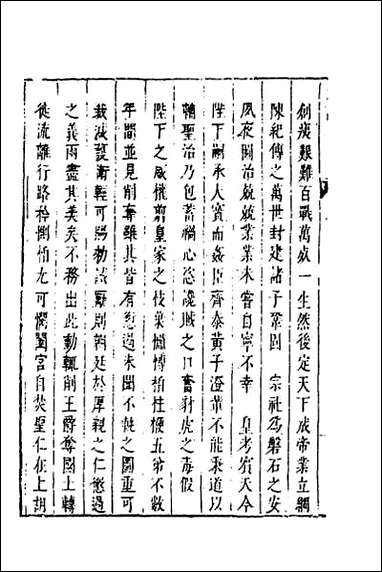 創痍艱難百戰萬死一生然後定天下成帝業立綱
陳紀傳之萬世封建諸子鞏固　宗社為磐石之安
夙夜圖治兢兢業業未嘗自寧不幸　皇考賓天今
陛下嗣承大寶而姦臣齊泰黃子澄輩不能秉道以
輔聖治乃包蓄禍心恣讒賊之口奮豺虎之毒假
陛下之威權剪皇家之枝葉橚榑柏桂楩五弟不數
年間並見削奪雖其皆有愆過未聞不軌之圖重可
裁減護衛輕可賜勑誡厲則親廷於厚親之仁懲過
之義兩盡其美矣不務出此動輒削王爵奪國土轉
徙流離行路棹惻柏尤可憫闔宮自焚聖仁在上胡